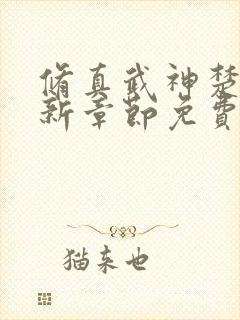 脩真武神楚
新章節免費
猫来也